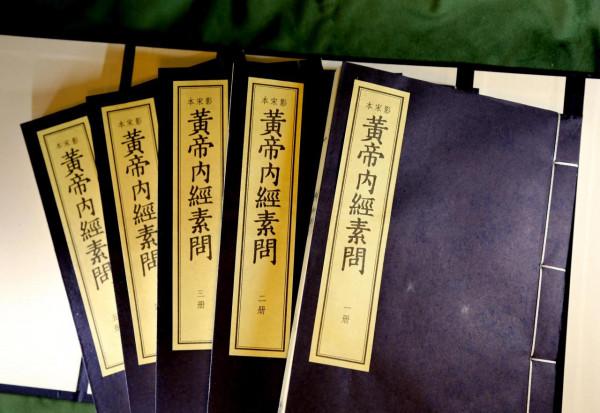 影宋本
黃帝内經素問
一册
影宋本
黃帝内經素問
二册
影宋本
黃帝内經素問
三册
影宋本
黃帝内經素問
影宋本
黃帝内經素問
册